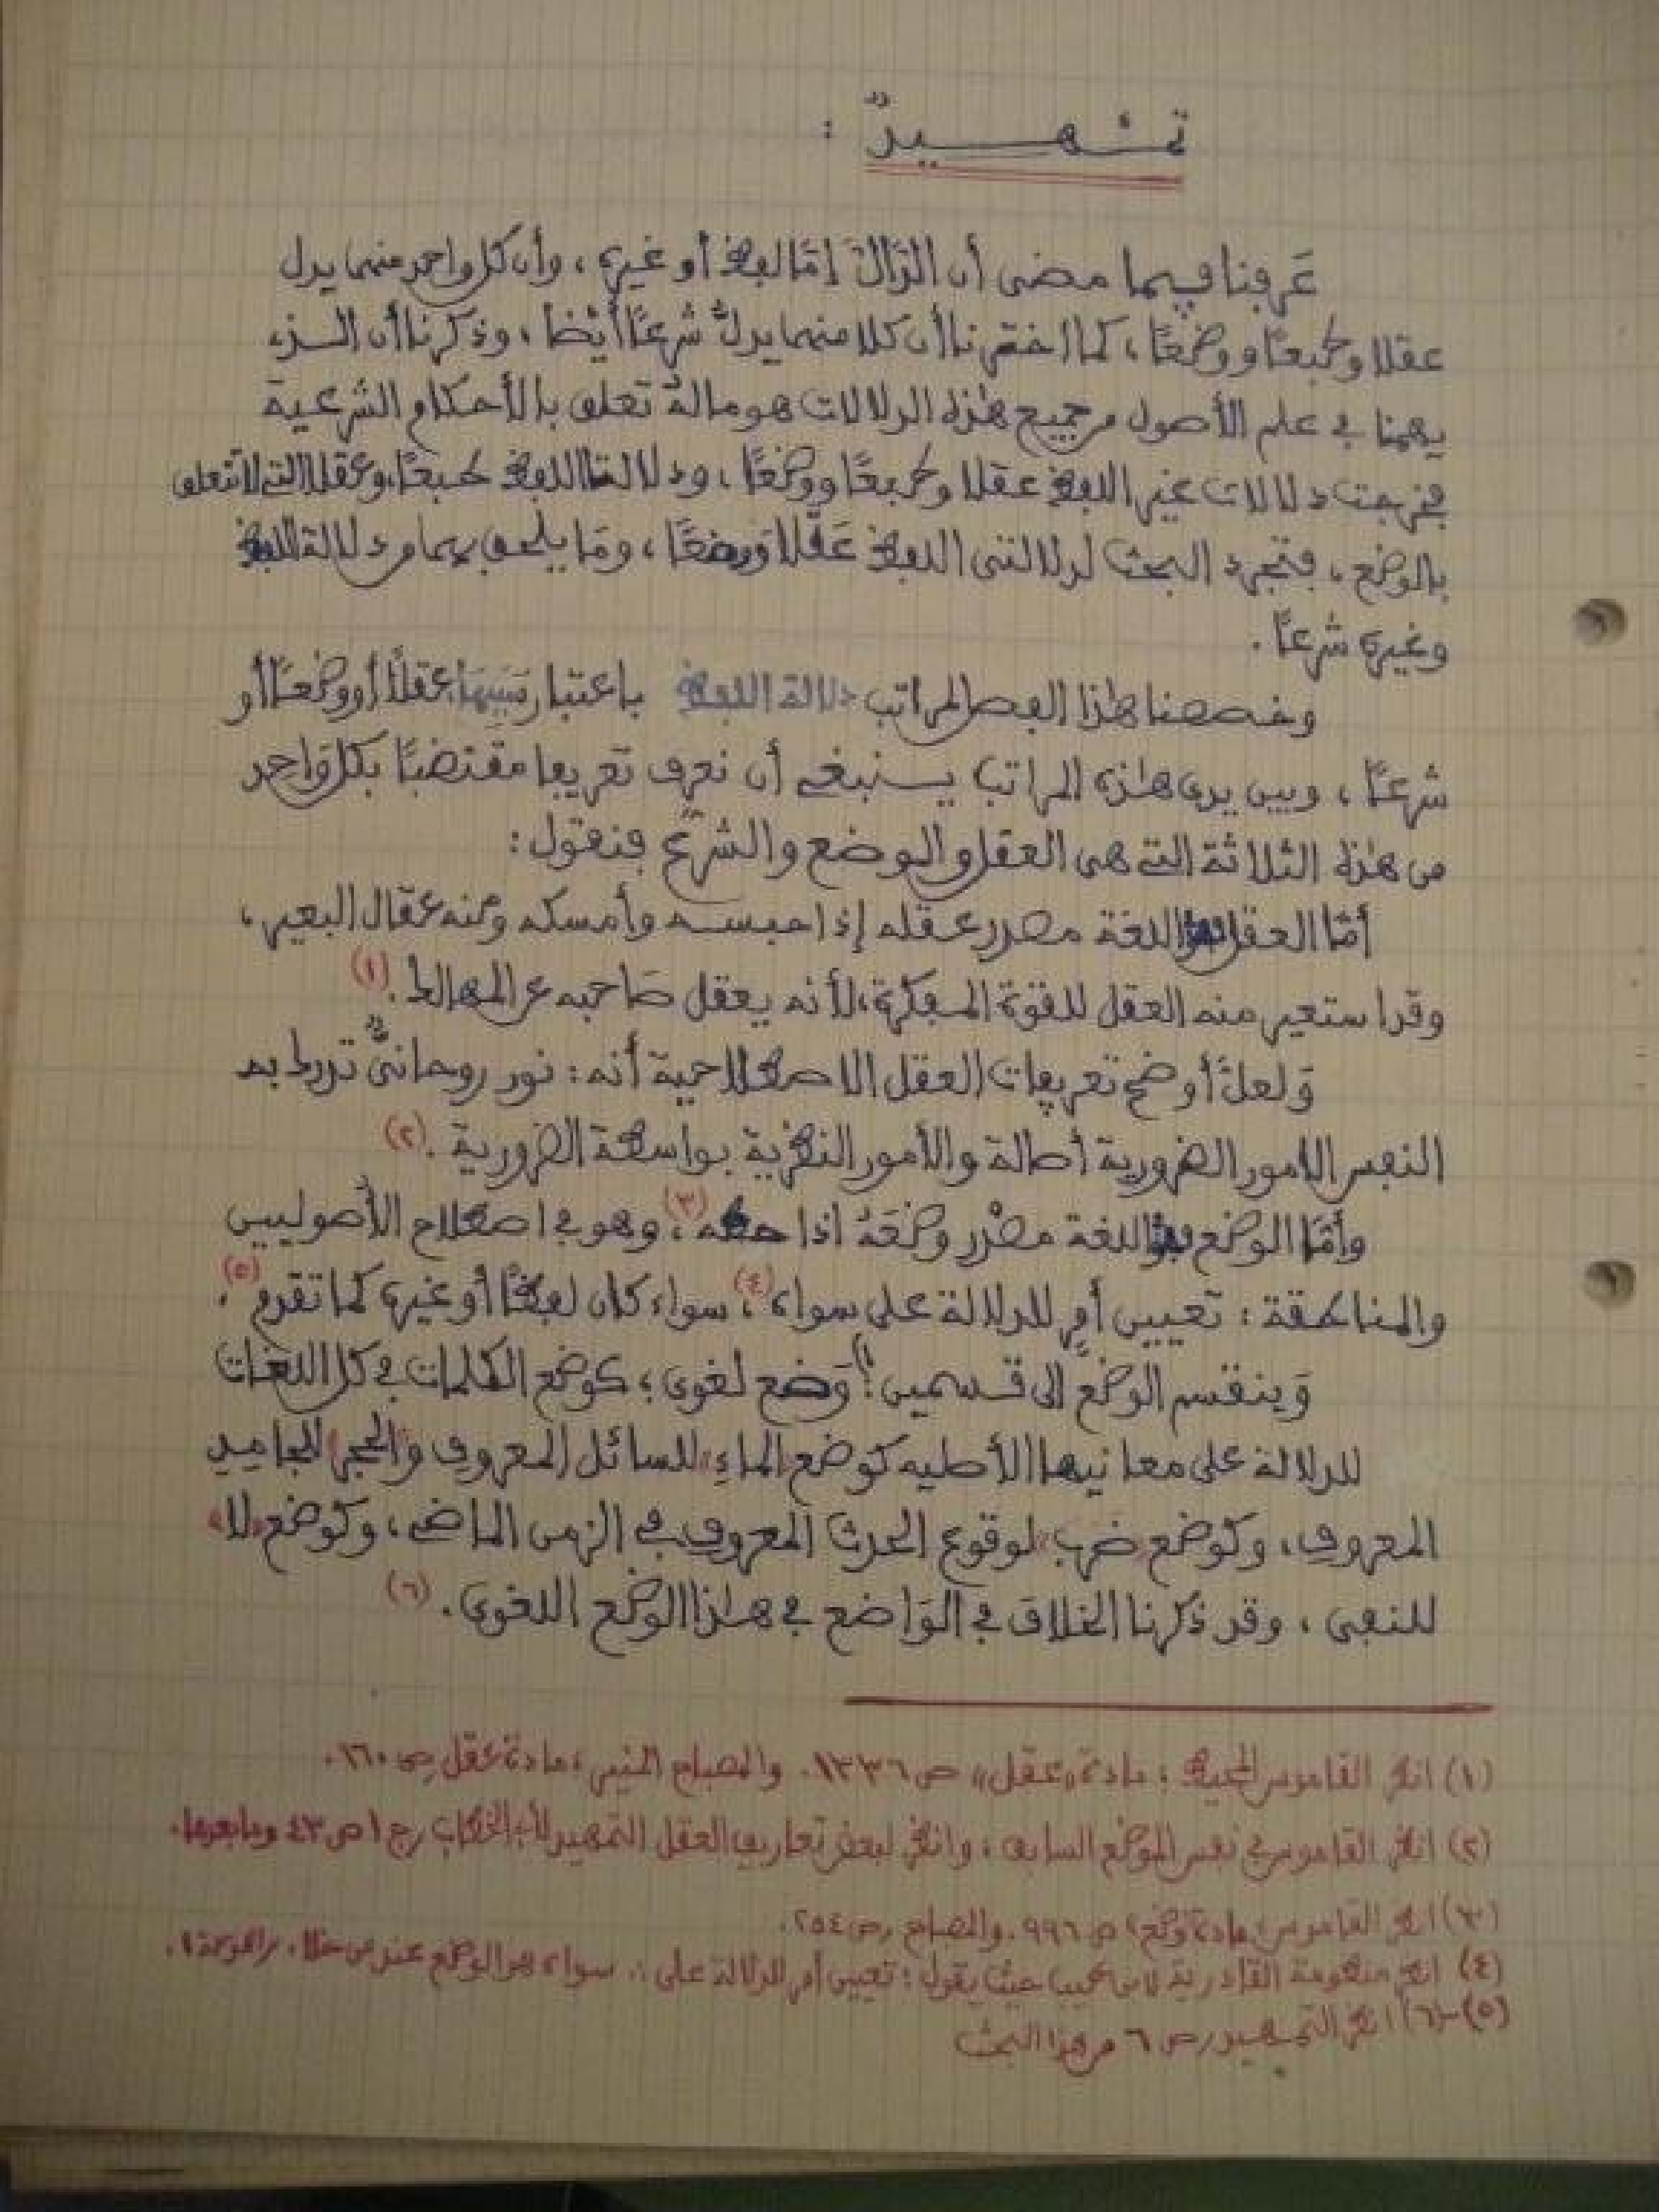 تمهيدٌ :
عَرفنا فيما مضى أن الدَّالَّ إمَّا لفظ أو غيره ، وأن كل واحد منهما يدل
عقلا وطبعًا ووضعًا ، كما اخترنا أن كلا منهما يدلُّ شرعًا أيضا ، وذكرنا أن الـذي
يهمنا في علم الأصول من جميع هذه الدلالات هو ماله تعلق بالأحكام الشرعية
فخرجت دلالات غير اللفظ عقلا وطبعًا ووضعًا ، ودلالتا اللفظ طبعًا وعقلا التي لا تتعلق
بالوضع ، فتجرد البحث لدلالتى اللفظ عَقلا وَوضعًا ، ومَا يلحق بهما من دلالة اللفظ
وغيره شرعًا .
وخصصنا هذا الفصل لمراتب دلالة اللفظ باعتبار سَبَبِهَا عقلًا أو وضعًا أو
شرعًا ، وبين يدى هذه المراتب يـنبغي أن نعرف تعريفا مقتضبًا بكل وَاحد
من هذه الثلاثة التي هى العقل والوضع والشرع فنقول :
أمَّا العقل فهو اللغة مصدر عقله إذا حبسـه وأمسكه ومنه عقال البعير ،
وقد استعير منه العقل للقوة المـفكرة ، لأنه يعقل صَاحبه عن المهالك . (١)
وَلعلَّ أوضح تعريفات العقل الاصطلاحية أنه : نور روحانىٌّ تدرك به
النفس الامور الضرورية أصالة والأمور النظرية بواسطة الضرورية . (٢)
وأمَّا الوضع فهو اللغة مصْدر وضَعَهُ اذا حطه (٣) ، وهو في اصطلاح الأصوليين
والمناطقة : تعيين أمرٍ للدلالة على سواه (٤) ، سواء كان لفظًا أو غيره كما تقدم (٥) .
وَينقسم الوضع إلى قـسمين : ١) وَضع لغوى ؛ كوضع الكلمات في كل اللغات
للدلالة على معانيها الأصليه كوَضع "الماءِ" للسائل المعروف و"الحجر" للجامـد
المعروف ، وكوضع "ضرب" لوقوع الحدث المعروف في الزمن الماضي ، وكوضع "لا"
للنفى ، وقد ذكرنا الخلاف في الوَاضع في هذا الوضع اللغوى . (٦)
(١) انظر القاموس المحيط : مادة "عقل" ص ١٣٣٦ . والمصباح المنير ، مادة عقل ص ١٦٠ .
(٢) انظر القاموس في نفس الموضع السابق ، وانظر لبعض تعاريف العقل التمهيد لأبى الخطاب ج ١ ص ٤٣ وما بعدها .
(٣) انظر القاموس مادة "وضع" ص ٩٩٦ . والمصباح ص ٢٥٤ .
(٤) انظر منظومة القادرية لابن الحبيب حيث يقول : تعيين أمر للدلالة على ∴ سواه هو الوضع عند من خلا
(٥) - (٦) انظر التمـهيد ص ٦ من هذا البحث